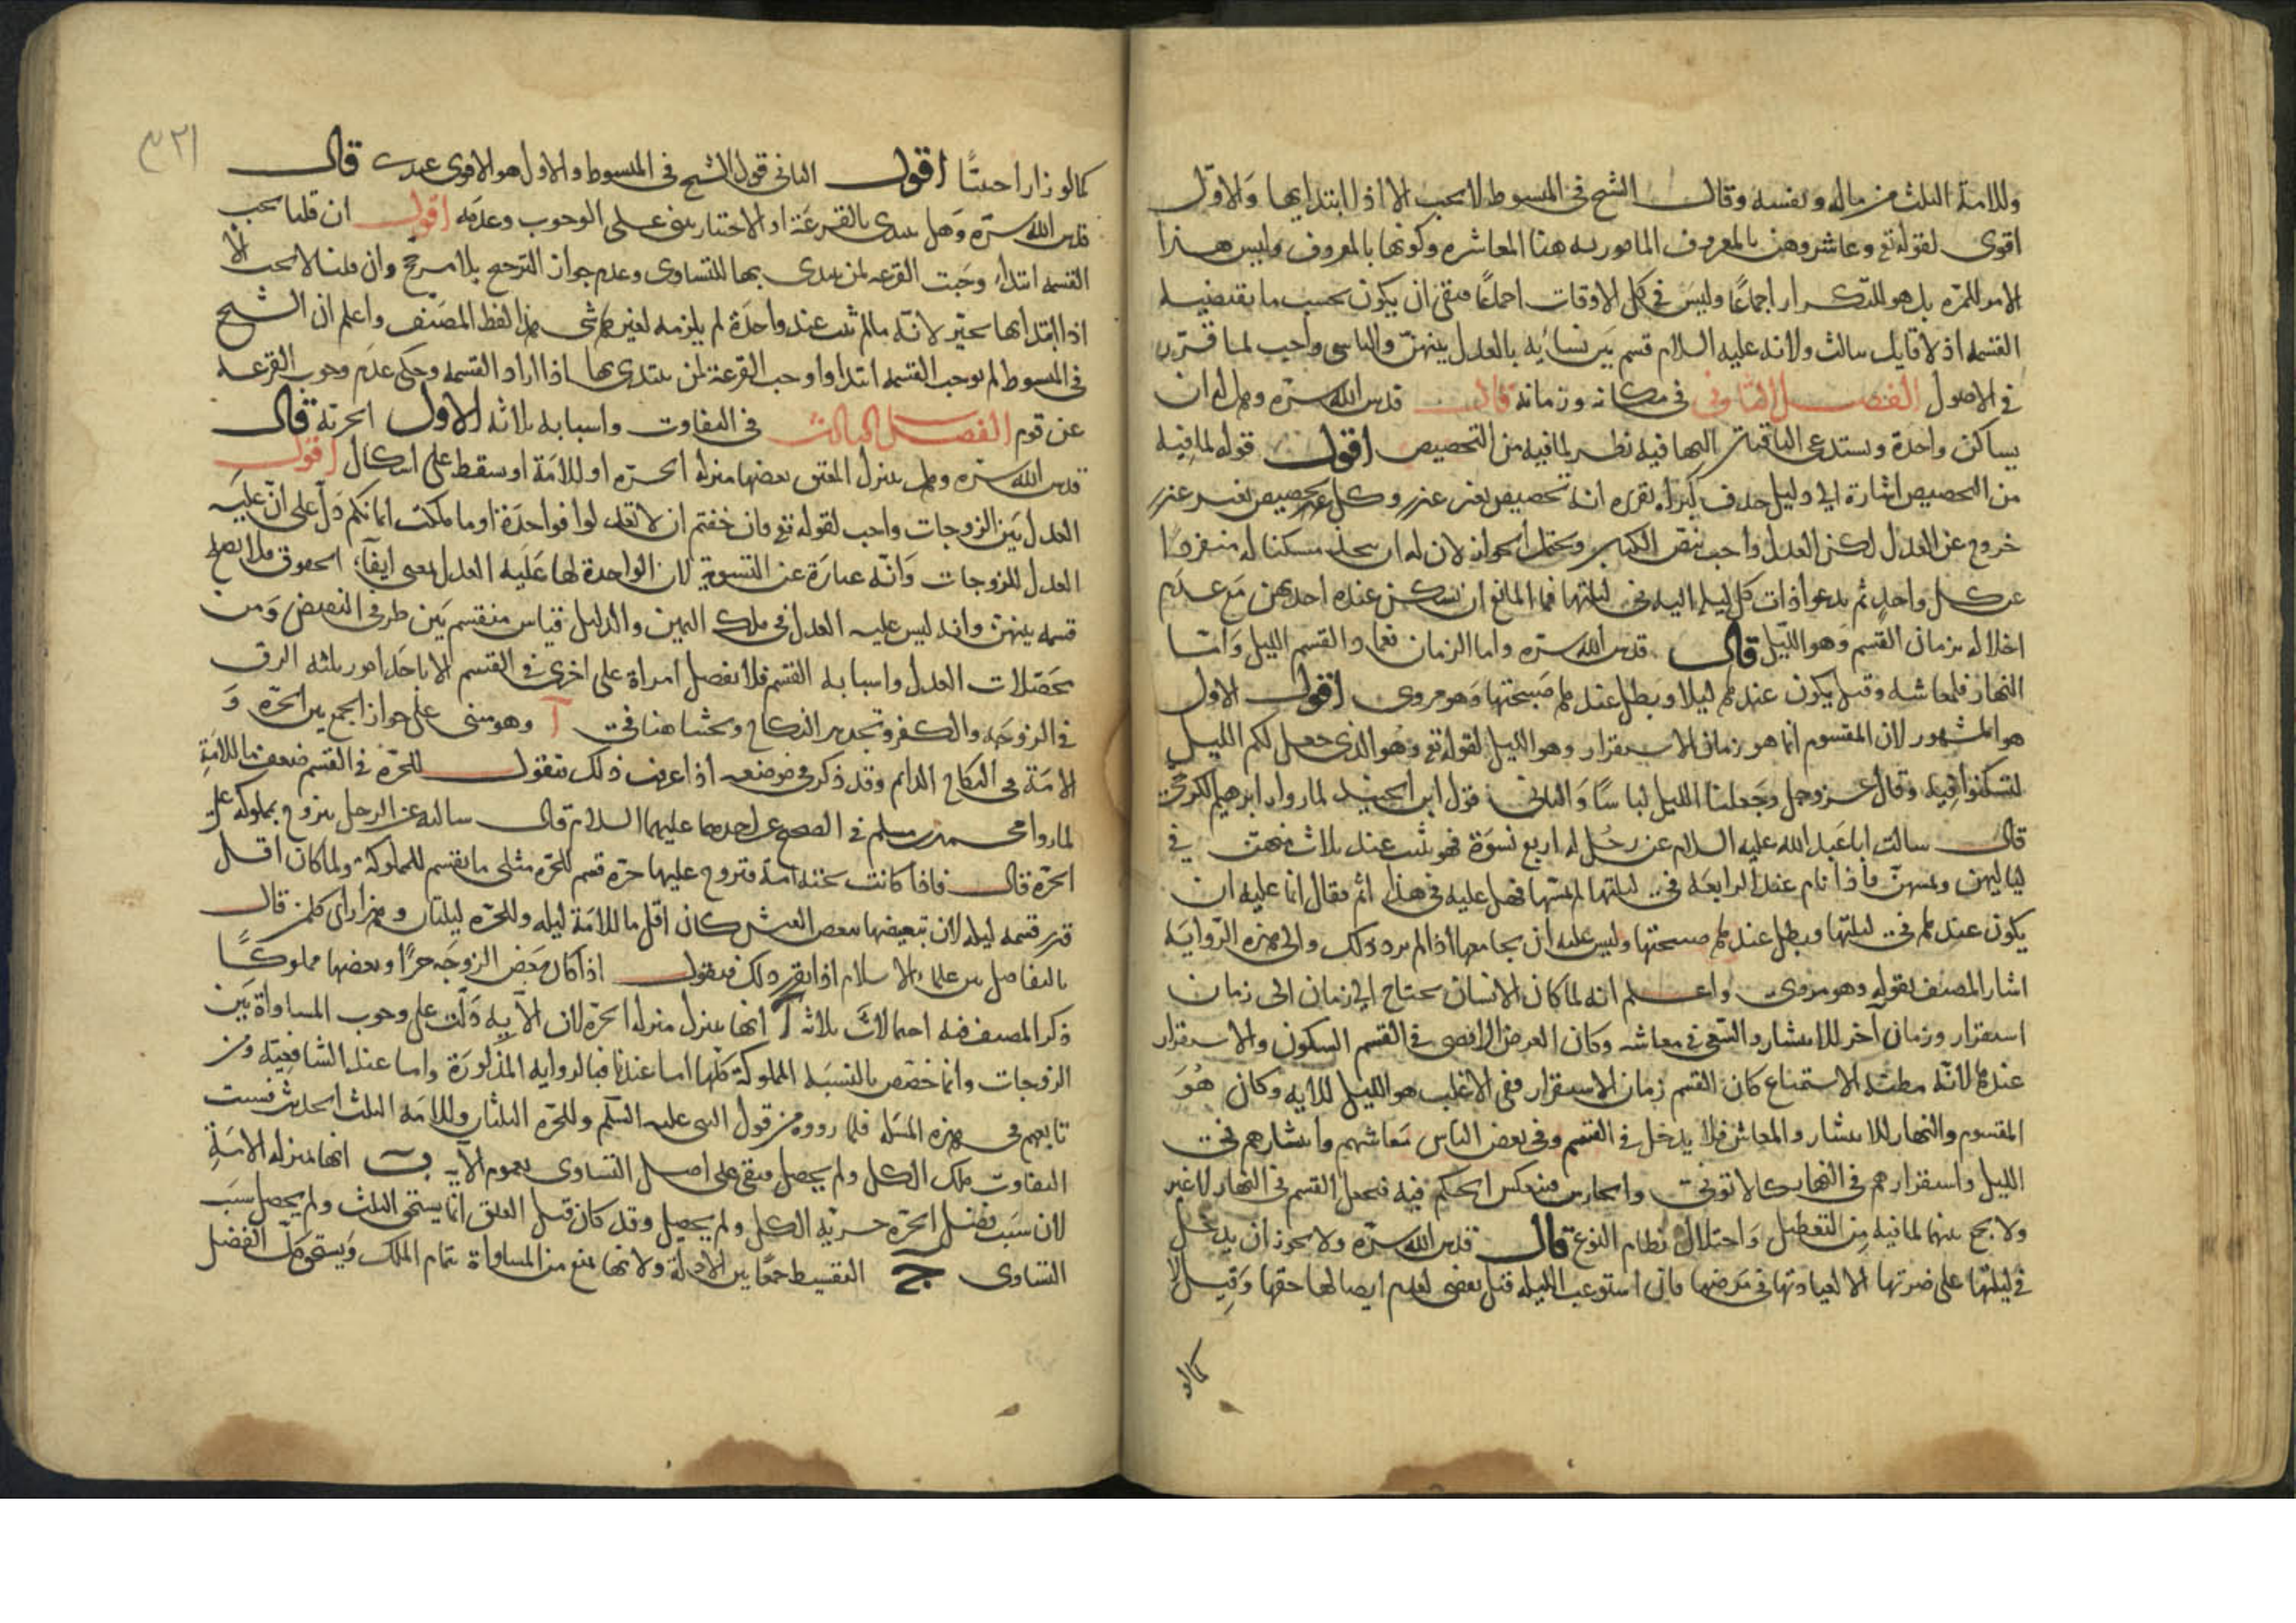 وللامة الثلث من ماله ونفسه وقال الشيخ في المبسوط لا يجب الا اذا ابتدا بها والاول
اقوى لقوله تع وعاشروهن بالمعروف المامور به هنا المعاشره وكونها بالمعروف وليس هذا
الامر للمرة بل هو للتكرار اجماعا وليس في كل الاوقات اجماعا فبقى ان يكون بحسب ما يقتضيه
القسمه اذ لا قايل بثالث ولانه عليه السلام قسم بين نسائه بالعدل بينهن والتاسى واجب لما قرر
في الاصول الفصل الثانى في مكانه وزمانه قال قدس الله سره وهل له ان
يساكن واحدة ويستدعى الباقيات اليها فيه نظر لما فيه من التخصيص اقول قوله لما فيه
من التخصيص اشارة الى دليل حذف كبراه تقريره انه تخصيص بغير عذر وكل تخصيص بغير عذر
خروج عن العدل لكن العدل واجب بنص الكبير ويحتمل الجواز لان له ان يتخذ مسكنا له منفردا
عن كل واحد ثم يدعوا ذات كل ليله اليه في ليلتها فما المانع ان تسكن عنده احديهن مع عدم
اخلاله بزمان القسم وهو الليل قال قدس الله سره واما الزمان فعماد القسم الليل واما
النهار فلمعاشه وقيل يكون عندها ليلا ويظل عندها صبيحتها وهو مروى اقول الاول
هو المشهور لان المقسوم انما هو زمان الاستقرار وهو الليل لقوله تع وهو الذى جعل لكم الليل
لتسكنوا فيه وقال عز وجل وجعلنا الليل لباسا والثانى قول ابن الجنيد لما رواه ابرهيم الكرخى
قال سالت ابا عبد الله عليه السلام عن رجل له اربع نسوة فهو يبيت عند ثلاث منهن في
لياليهن ويمسهن فاذا نام عند الرابعه في ليلتها لم يمسها فهل عليه في هذا اثم فقال انما عليه ان
يكون عندها في ليلتها ويظل عندها صبيحتها وليس عليه ان يجامعها اذا لم يرد ذلك والى هذه الروايه
اشار المصنف بقوله وهو مروى واعلم انه لما كان الانسان يحتاج الى زمان الى زمان
استقرار وزمان آخر للانتشار والسعى في معاشه وكان الغرض الاقصى في القسم السكون والاستقرار
عندها لانه مظنه الاستمتاع كان القسم زمان الاستقرار ففى الاغلب هو الليل للايه وكان هو
المقسوم والنهار للانتشار والمعاش فلا يدخل في القسم وفى بعض الناس معاشهم وانتشارهم في
الليل واستقرارهم في النهار كالاتونى والحارس فينعكس الحكم فيه فيجعل القسم في النهار لا غير
ولا يجمع بينهما لما فيه من التعطيل واختلال نظام النوع قال قدس الله سره ولا يجوز ان يدخل
في ليلتها على ضرتها الا لعيادتها في مرضها فان استوعب الليله قيل يقضى لعدم ايصالها حقها وقيل لا
كمالو
كما لو زار اجنبيا اقول الثانى قول الشيخ في المبسوط والاول هو الاقوى عندى قال
قدس الله سره وهل يبتدى بالقرعة او الاختيار يبنى على الوجوب وعدمه اقول ان قلنا تجب
القسمه ابتداء وجبت القرعه لمن يبتدى بها للتساوى وعدم جواز الترجيح بلا مرجح وان قلنا لا تجب الا
اذا ابتدا بها تخير لانه ما لم يبت عند واحدة لم يلزمه لغيرها شى هذا لفظ المصنف واعلم ان الشيخ
في المبسوط لم يوجب القسمه ابتدا واوجب القرعة لمن يبتدى بها اذا اراد القسمه وحكى عدم وجوب القرعه
عن قوم الفصل الثالث في التفاوت واسبابه ثلاثه الاول الحريه قال
قدس الله سره وهل ينزل المعتق بعضها منزله الحره او للامة او يسقط على اشكال اقول
العدل بين الزوجات واجب لقوله تع فان خفتم ان لا تعدلوا فواحدة او ما ملكت ايمانكم دل على ان عليه
العدل للزوجات وانه عبارة عن التسوية لان الواحدة لها عليه العدل بمعنى ايفاء الحقوق فلا يصلح
قسمه بينهن وانه ليس عليه العدل في ملك اليمين والدليل قياس منقسم بين طرفى النقيض ومن
محتملات العدل واسبابه القسم فلا يفضل امراة على اخرى في القسم الا باحد امور ثلثه الرق
في الزوجه والكفر وتجديد النكاح وبحثنا هنا في آ وهو مبنى على جواز الجمع بين الحره و
الامة في النكاح الدائم وقد ذكر في موضعه اذا عرفت ذلك فنقول للحرة في القسم ضعف ما للامة
لما رواه محمد بن مسلم في الصحيح عن احدهما عليهما السلام قال سالته عن الرجل يتزوج المملوكه على
الحره قال فاذا كانت تحته امة فتزوج عليها حرة قسم للحره مثلى ما يقسم للمملوكة ولما كان اقل
قدر قسمه ليله لان تبعيضها ينغص العيش كان اقل ما للامة ليله وللحره ليلتان وهذا راى كل من قال
بالتفاضل من علماء الاسلام اذا تقرر ذلك فنقول اذا كان بعض الزوجه حرا وبعضها مملوكا
ذكر المصنف فيه احتمالات ثلاثه آ انها تنزل منزله الحرة لان الآيه دلت على وجوب المساواة بين
الزوجات وانما خصص بالنسبه المملوكة كلها اما عندنا فبالروايه المذكورة واما عند الشافعيه ومن
تابعهم في هذه المسله فلما رووه من قول النبى عليه السلم وللحره الثلثان وللامه الثلث الحديث فسبب
التفاوت ملك الكل ولم يحصل فبقى على اصل التساوى بعموم الآيه ب انها بمنزله الامة
لان سبب تفضيل الحرة حريه الكل ولم يحصل وقد كان قبل العتق انما يستحق الثلث ولم يحصل سبب
التساوى ج التقسيط جمعا بين الادلة ولانها تمنع من المساواة تمام الملك ويستحق كل الفضل